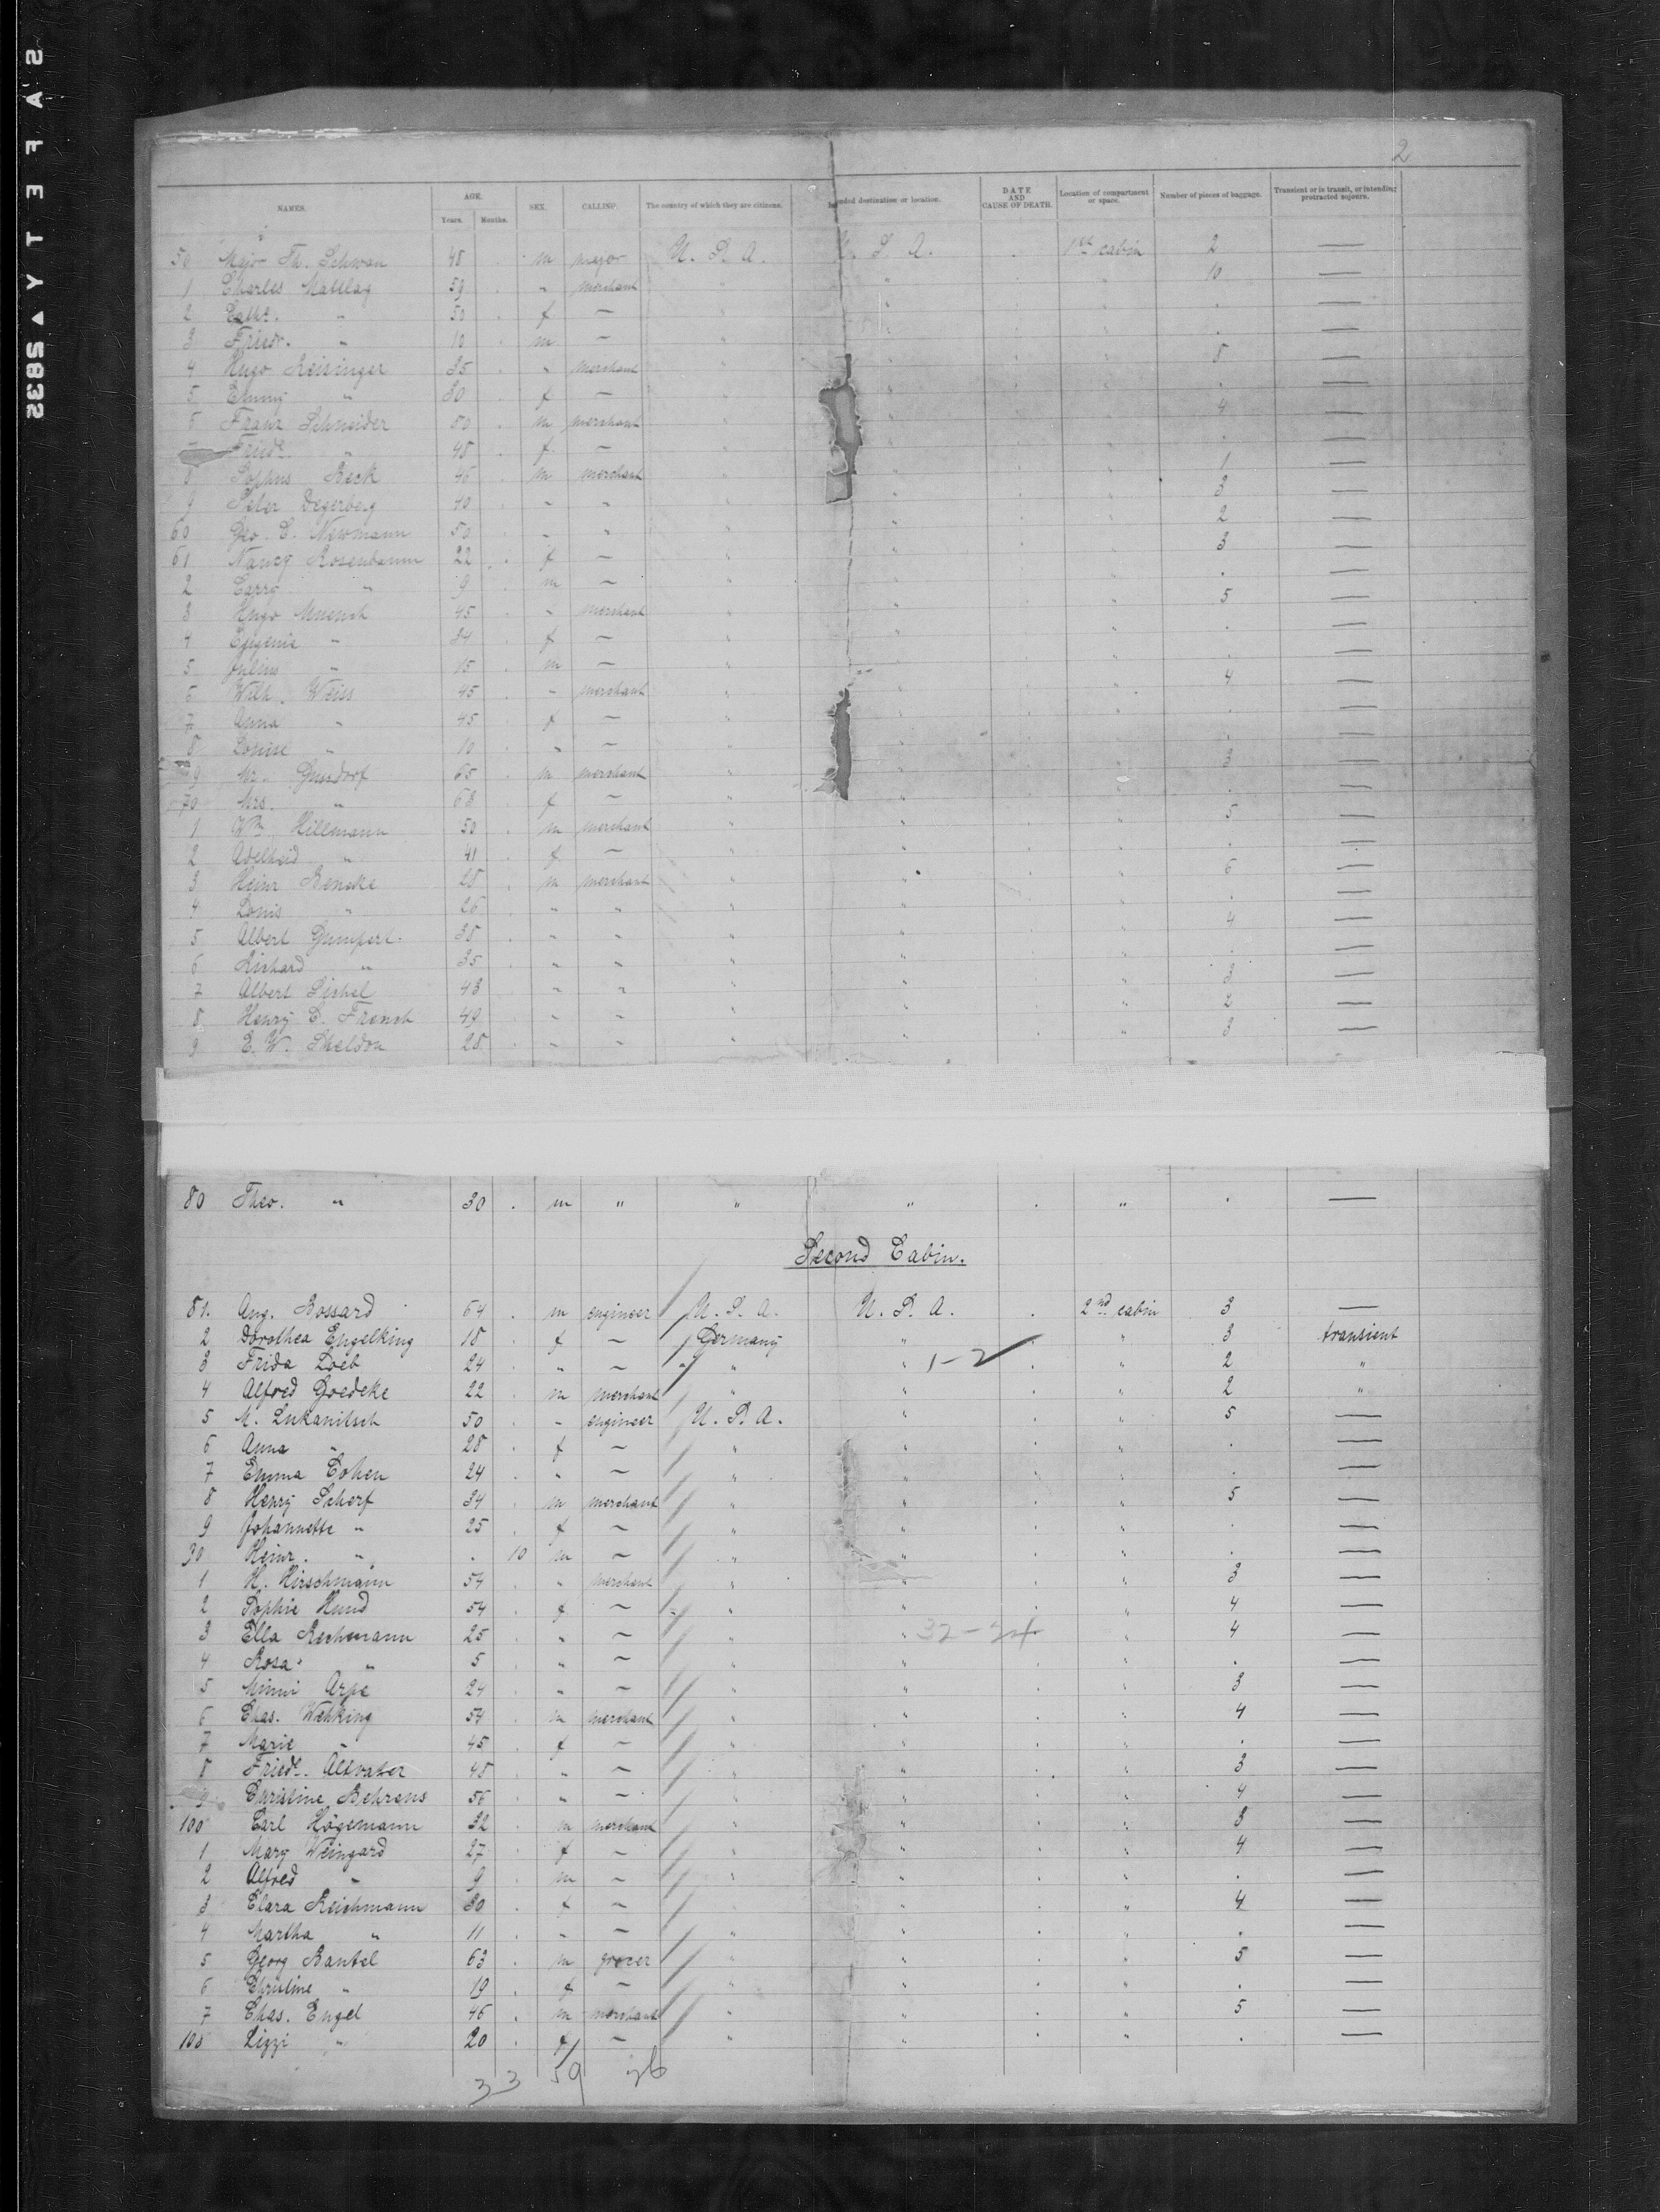 SAFETY ▲ 5832
2
NAMES. AGE. Years. Months. SEX. CALLING. The country of which they are citizens. Intended destination or location. DATE AND CAUSE OF DEATH. Location of compartment or space. Number of pieces of baggage. Transient or in transit, or intending protracted sojourn.
50 Major Th. Schwan 48 . m major U. S. A. U. S. A. . 1st cabin 2 —
1 Charles Mattlag 59 . " merchant " " . " 10 —
2 " 50 . f — " " . " . —
3 Friedr. " 10 . m — " " . " . —
4 Hugo Reisinger 35 . " merchant " " . " 8 —
5 Emmy " 30 . f — " " . " . —
6 Franz Schneider 50 . m merchant " " . " 4 —
7 Friedr. " 48 . f — " " . " . —
8 Sophus Beck 46 . m merchant " " . " 1 —
9 Peter Degerberg 40 . " " " " . " 3 —
60 Geo. C. Newmann 50 . " " " " . " 2 —
61 Nancy Rosenbaum 22 . f — " " . " 3 —
2 Carry " 9 . m — " " . " . —
3 Hugo Muench 45 . " merchant " " . " 5 —
4 Eugenie " 34 . f — " " . " . —
5 Julius " 15 . m — " " . " . —
6 Wilh. Weiss 45 . " merchant " " . " 4 —
7 Anna " 45 . f — " " . " . —
8 Louise " 10 . " — " " . " . —
9 Mr. Gusdorf 65 . m merchant " " . " 3 —
70 Mrs. " 63 . f — " " . " . —
1 Wm. Hillmann 50 . m merchant " " . " 5 —
2 Adelheid " 41 . f — " " . " . —
3 Heinr Beneke 28 . m merchant " " . " 6 —
4 Louis " 26 . " " " " . " . —
5 Albert Gumpert. 38 . " " " " . " 4 —
6 Richard " 35 . " " " " . " . —
7 Albert Sichel 43 . " " " " . " 3 —
8 Henry C. French 49 . " " " " . " 2 —
9 E. W. Sheldon 28 . " " " " . " 3 —
80 Theo. " 30 . m " " " . " . —
Second Cabin.
81. Aug. Bossard 64 . m engineer U. S. A. U. S. A. . 2nd cabin 3 —
2 Dorothea Engelking 18 . f — Germany " . " 3 transient
3 Frida Loeb 24 . " — " " 1-2 . " 2 "
4 Alfred Goedeke 22 . m merchant " " . " 2 "
5 M. Lukanitsch 50 . " engineer U. S. A. " . " 5 —
6 Anna " 28 . f — " " . " . —
7 Emma Cohen 24 . " — " " . " . —
8 Henry Scherf 34 . m merchant " " . " 5 —
9 Johannette " 25 . f — " " . " . —
30 Heinr. " . 10 m — " " . " . —
1 H. Hirschmann 54 . " merchant " " . " 3 —
2 Sophie Hund 54 . f — " " . " 4 —
3 Ella Rechmann 25 . " — " " 32-24 . " 4 —
4 Rosa " 5 . " — " " . " . —
5 Minni Arpe 24 . " — " " . " 3 —
6 Chas. Wehking 54 . m merchant " " . " 4 —
7 Marie " 45 . f — " " . " . —
8 Friedr. Altvater 48 . " — " " . " 3 —
9 Christine Behrens 56 . " — " " . " 4 —
100 Carl Högemann 32 . m merchant " " . " 3 —
1 Mary Weingard 27 . f — " " . " 4 —
2 Alfred " 9 . m — " " . " . —
3 Clara Reichmann 30 . f — " " . " 4 —
4 Martha " 11 . " — " " . " . —
5 Georg Bantel 63 . m grocer " " . " 5 —
6 Christine " 19 . f — " " . " . —
7 Chas. Engel 46 . m merchant " " . " 5 —
108 Lizzi " 20 . f — " " . " . —
33 59 26